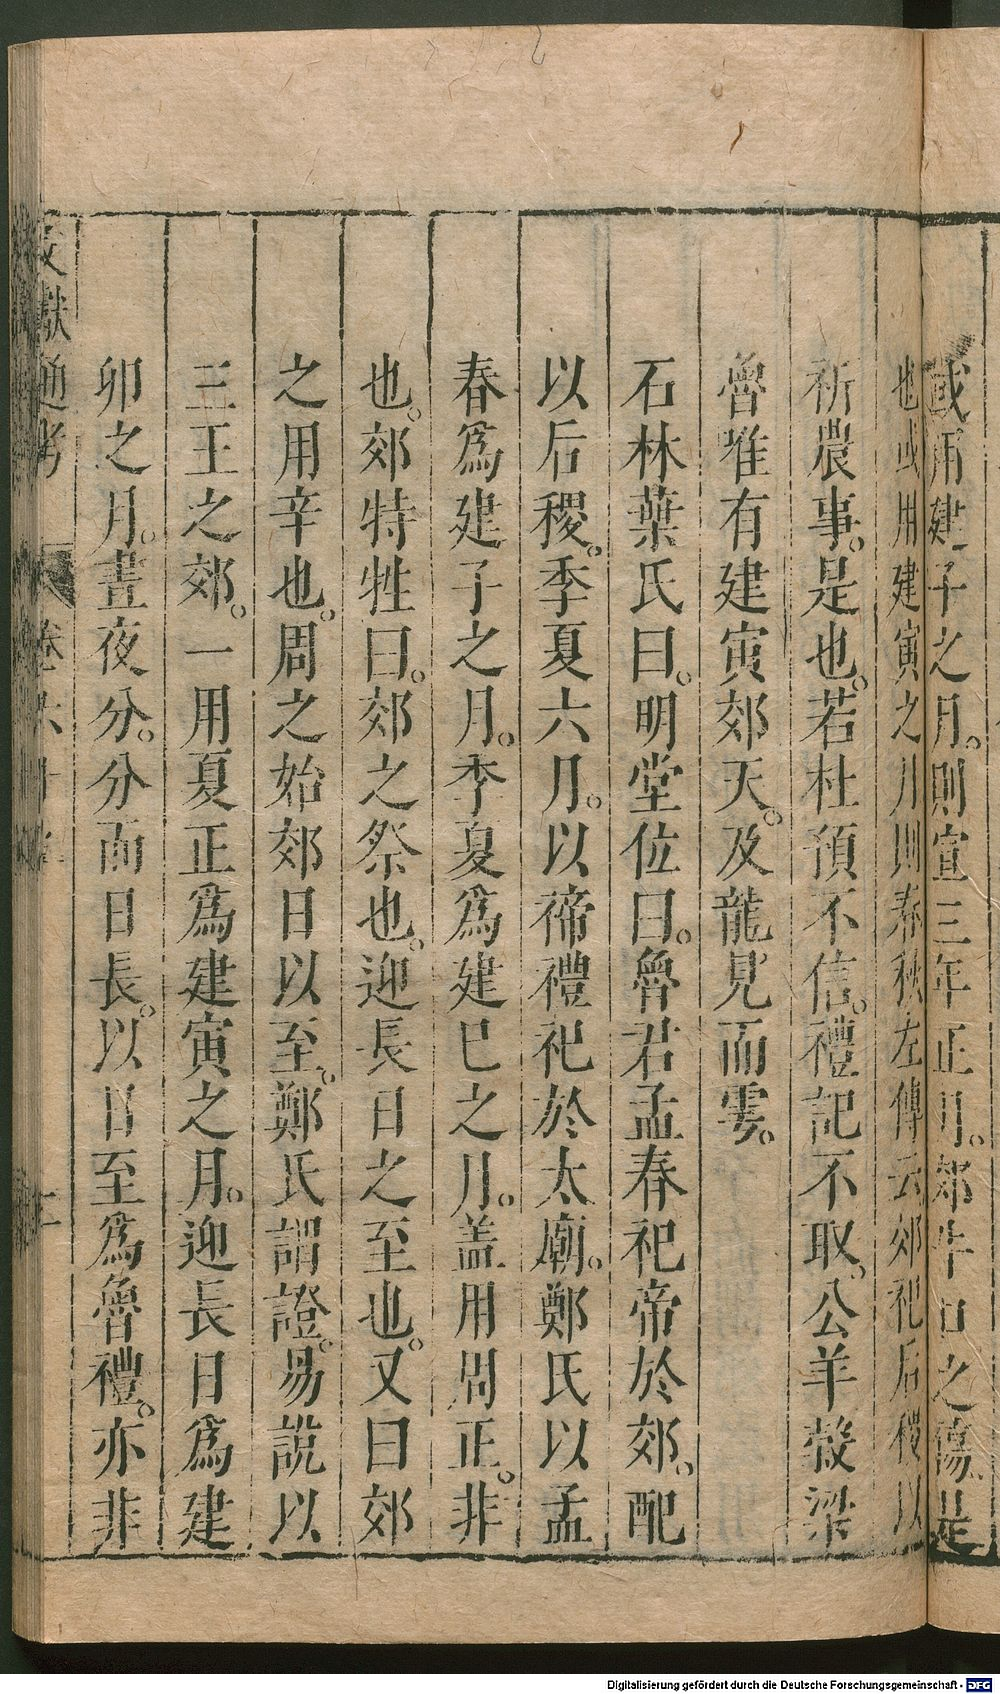 或用建子之月則宣三年正月郊牛口之傷是
也或用建寅之月則春秋左傳云郊祀后稷以
祈農事是也若杜預不信禮記不取公羊穀梁
魯惟有建寅郊天及龍見而雩
石林葉氏曰明堂位曰魯君孟春祀帝於郊配
以后稷季夏六月以禘禮祀於太廟鄭氏以孟
春爲建子之月季夏爲建巳之月盖用周正非
也郊特牲曰郊之祭也迎長日之至也又曰郊
之用辛也周之始郊日以至鄭氏謂證易說以
三王之郊一用夏正爲建寅之月迎長日爲建
卯之月晝夜分分而日長以日至爲魯禮亦非
文獻通考 卷六十 上
Digitalisierung gefördert durch die Deutsche Forschungsgemeinschaft - DFG